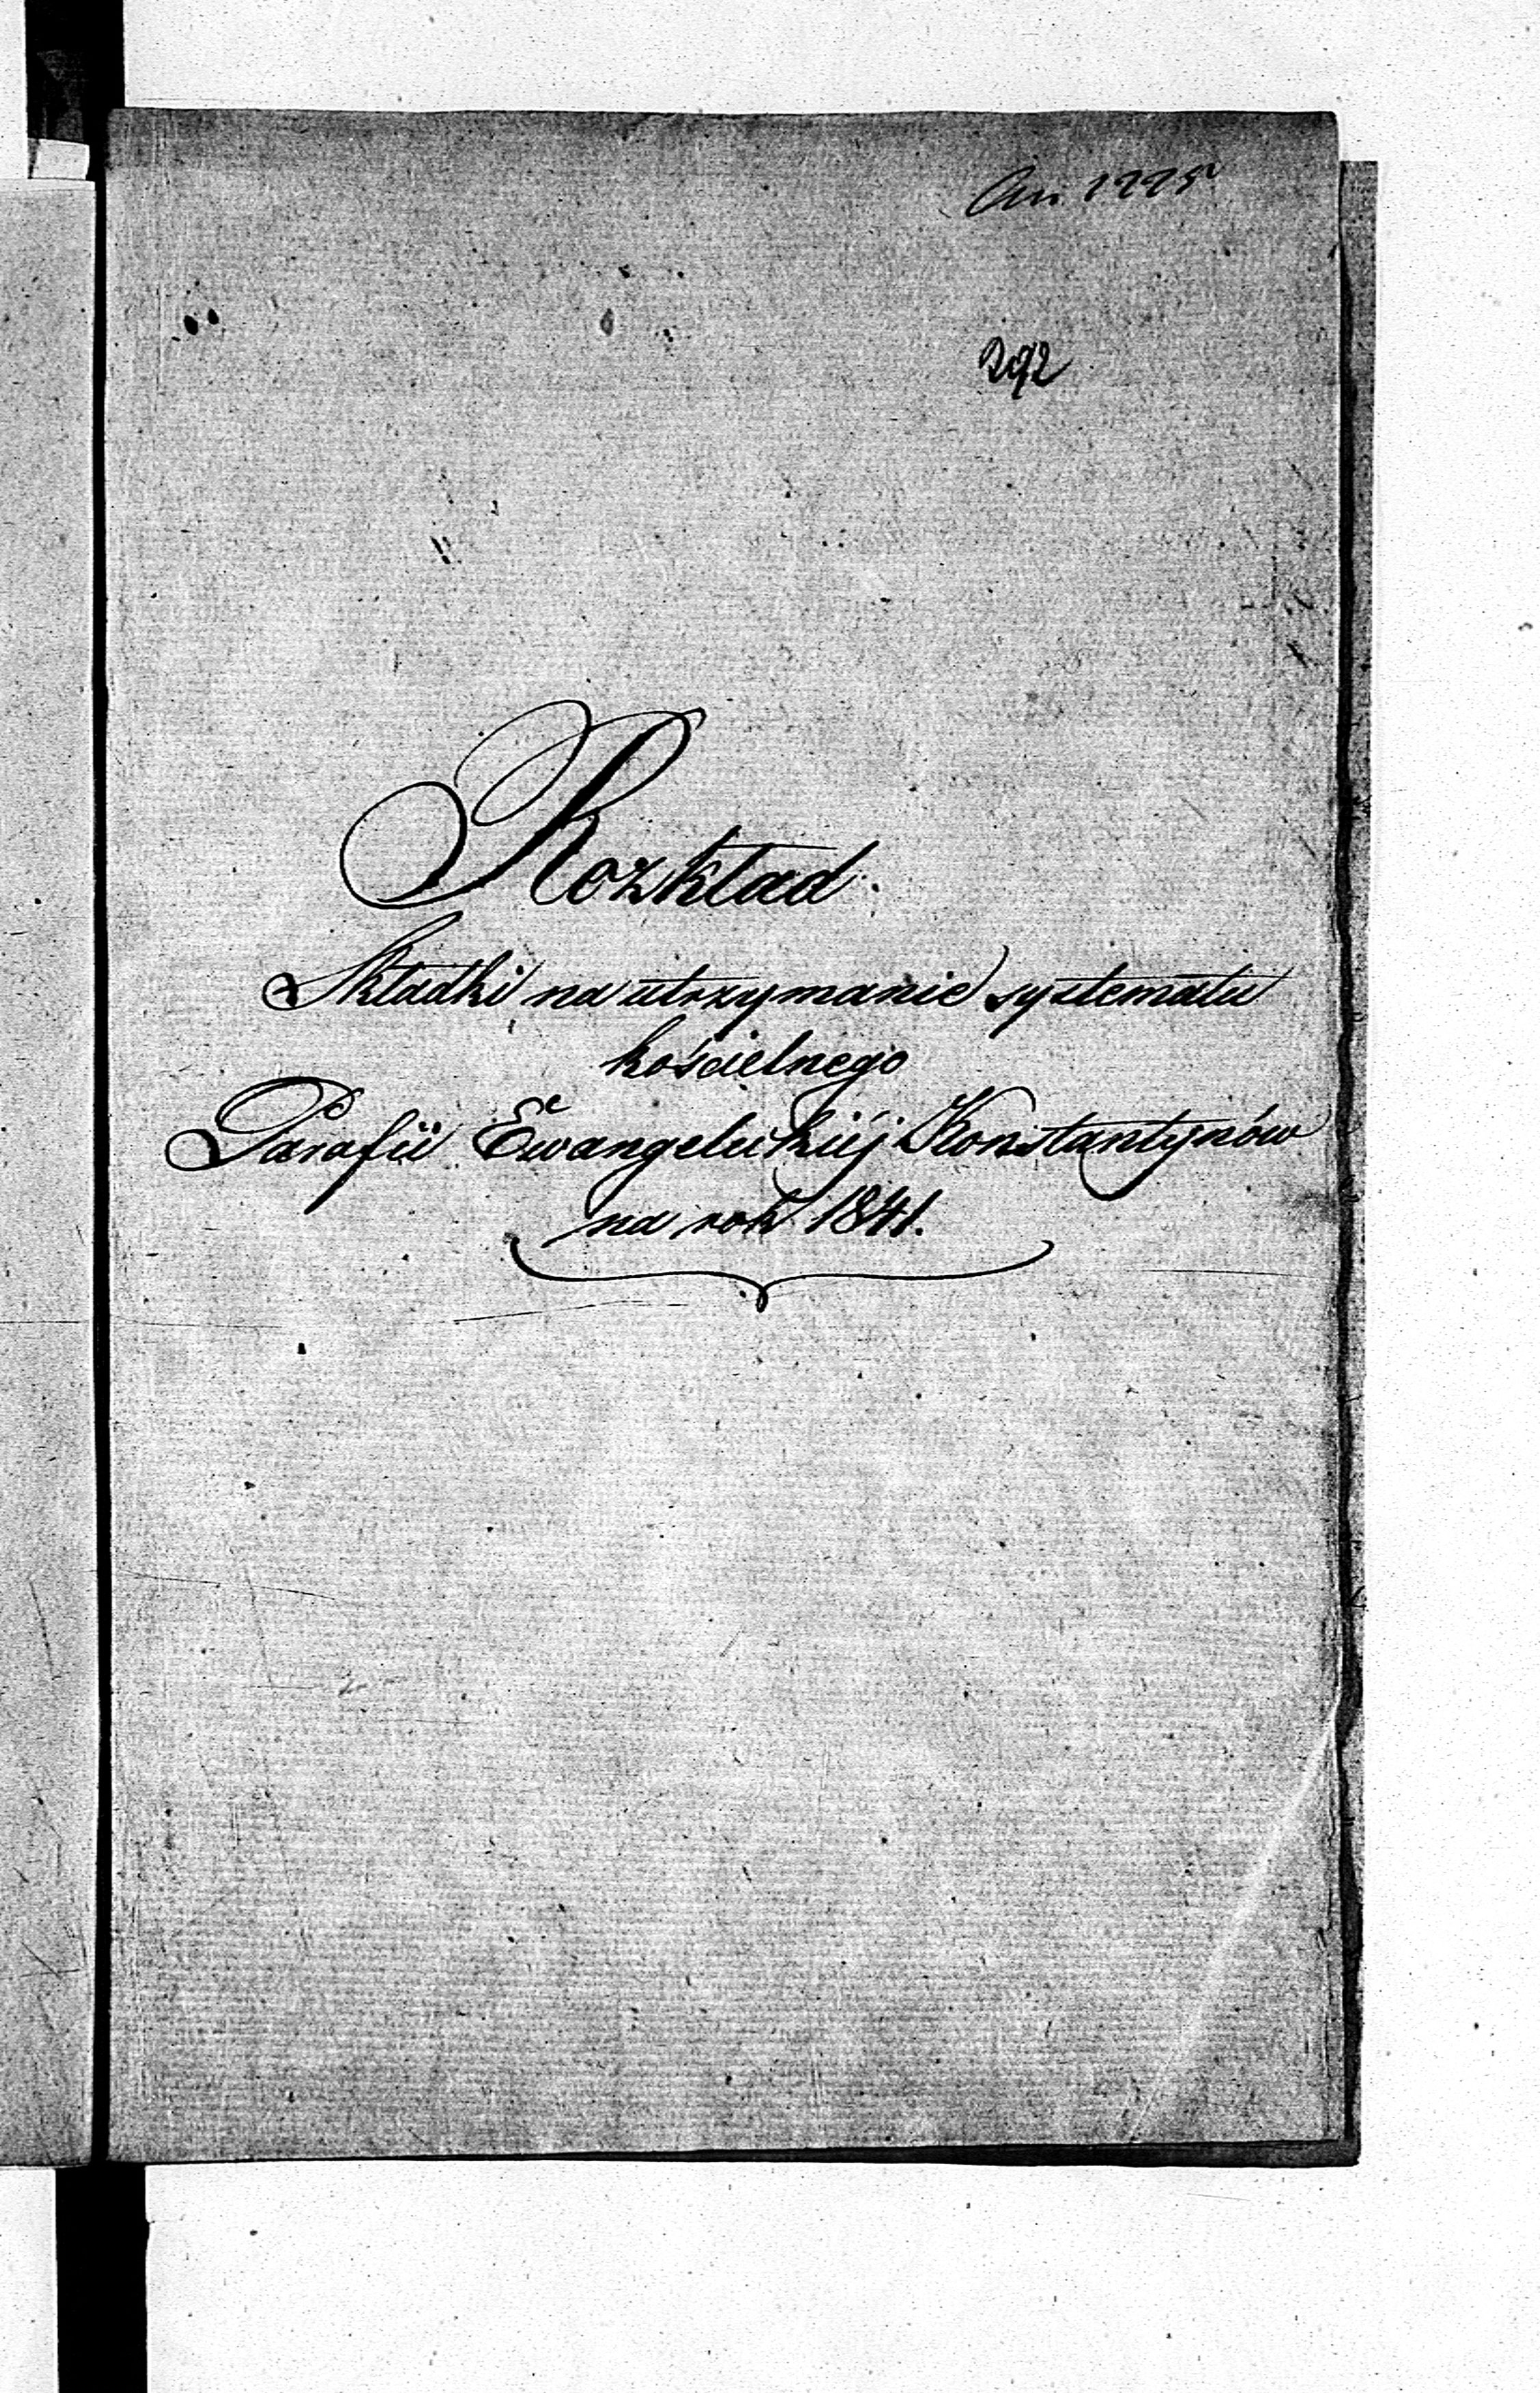 292
Rozkład
Składki na utrzymanie systematu
kościelnego
Parafii Ewangelickiéj Konstantynów
na rok 1841.